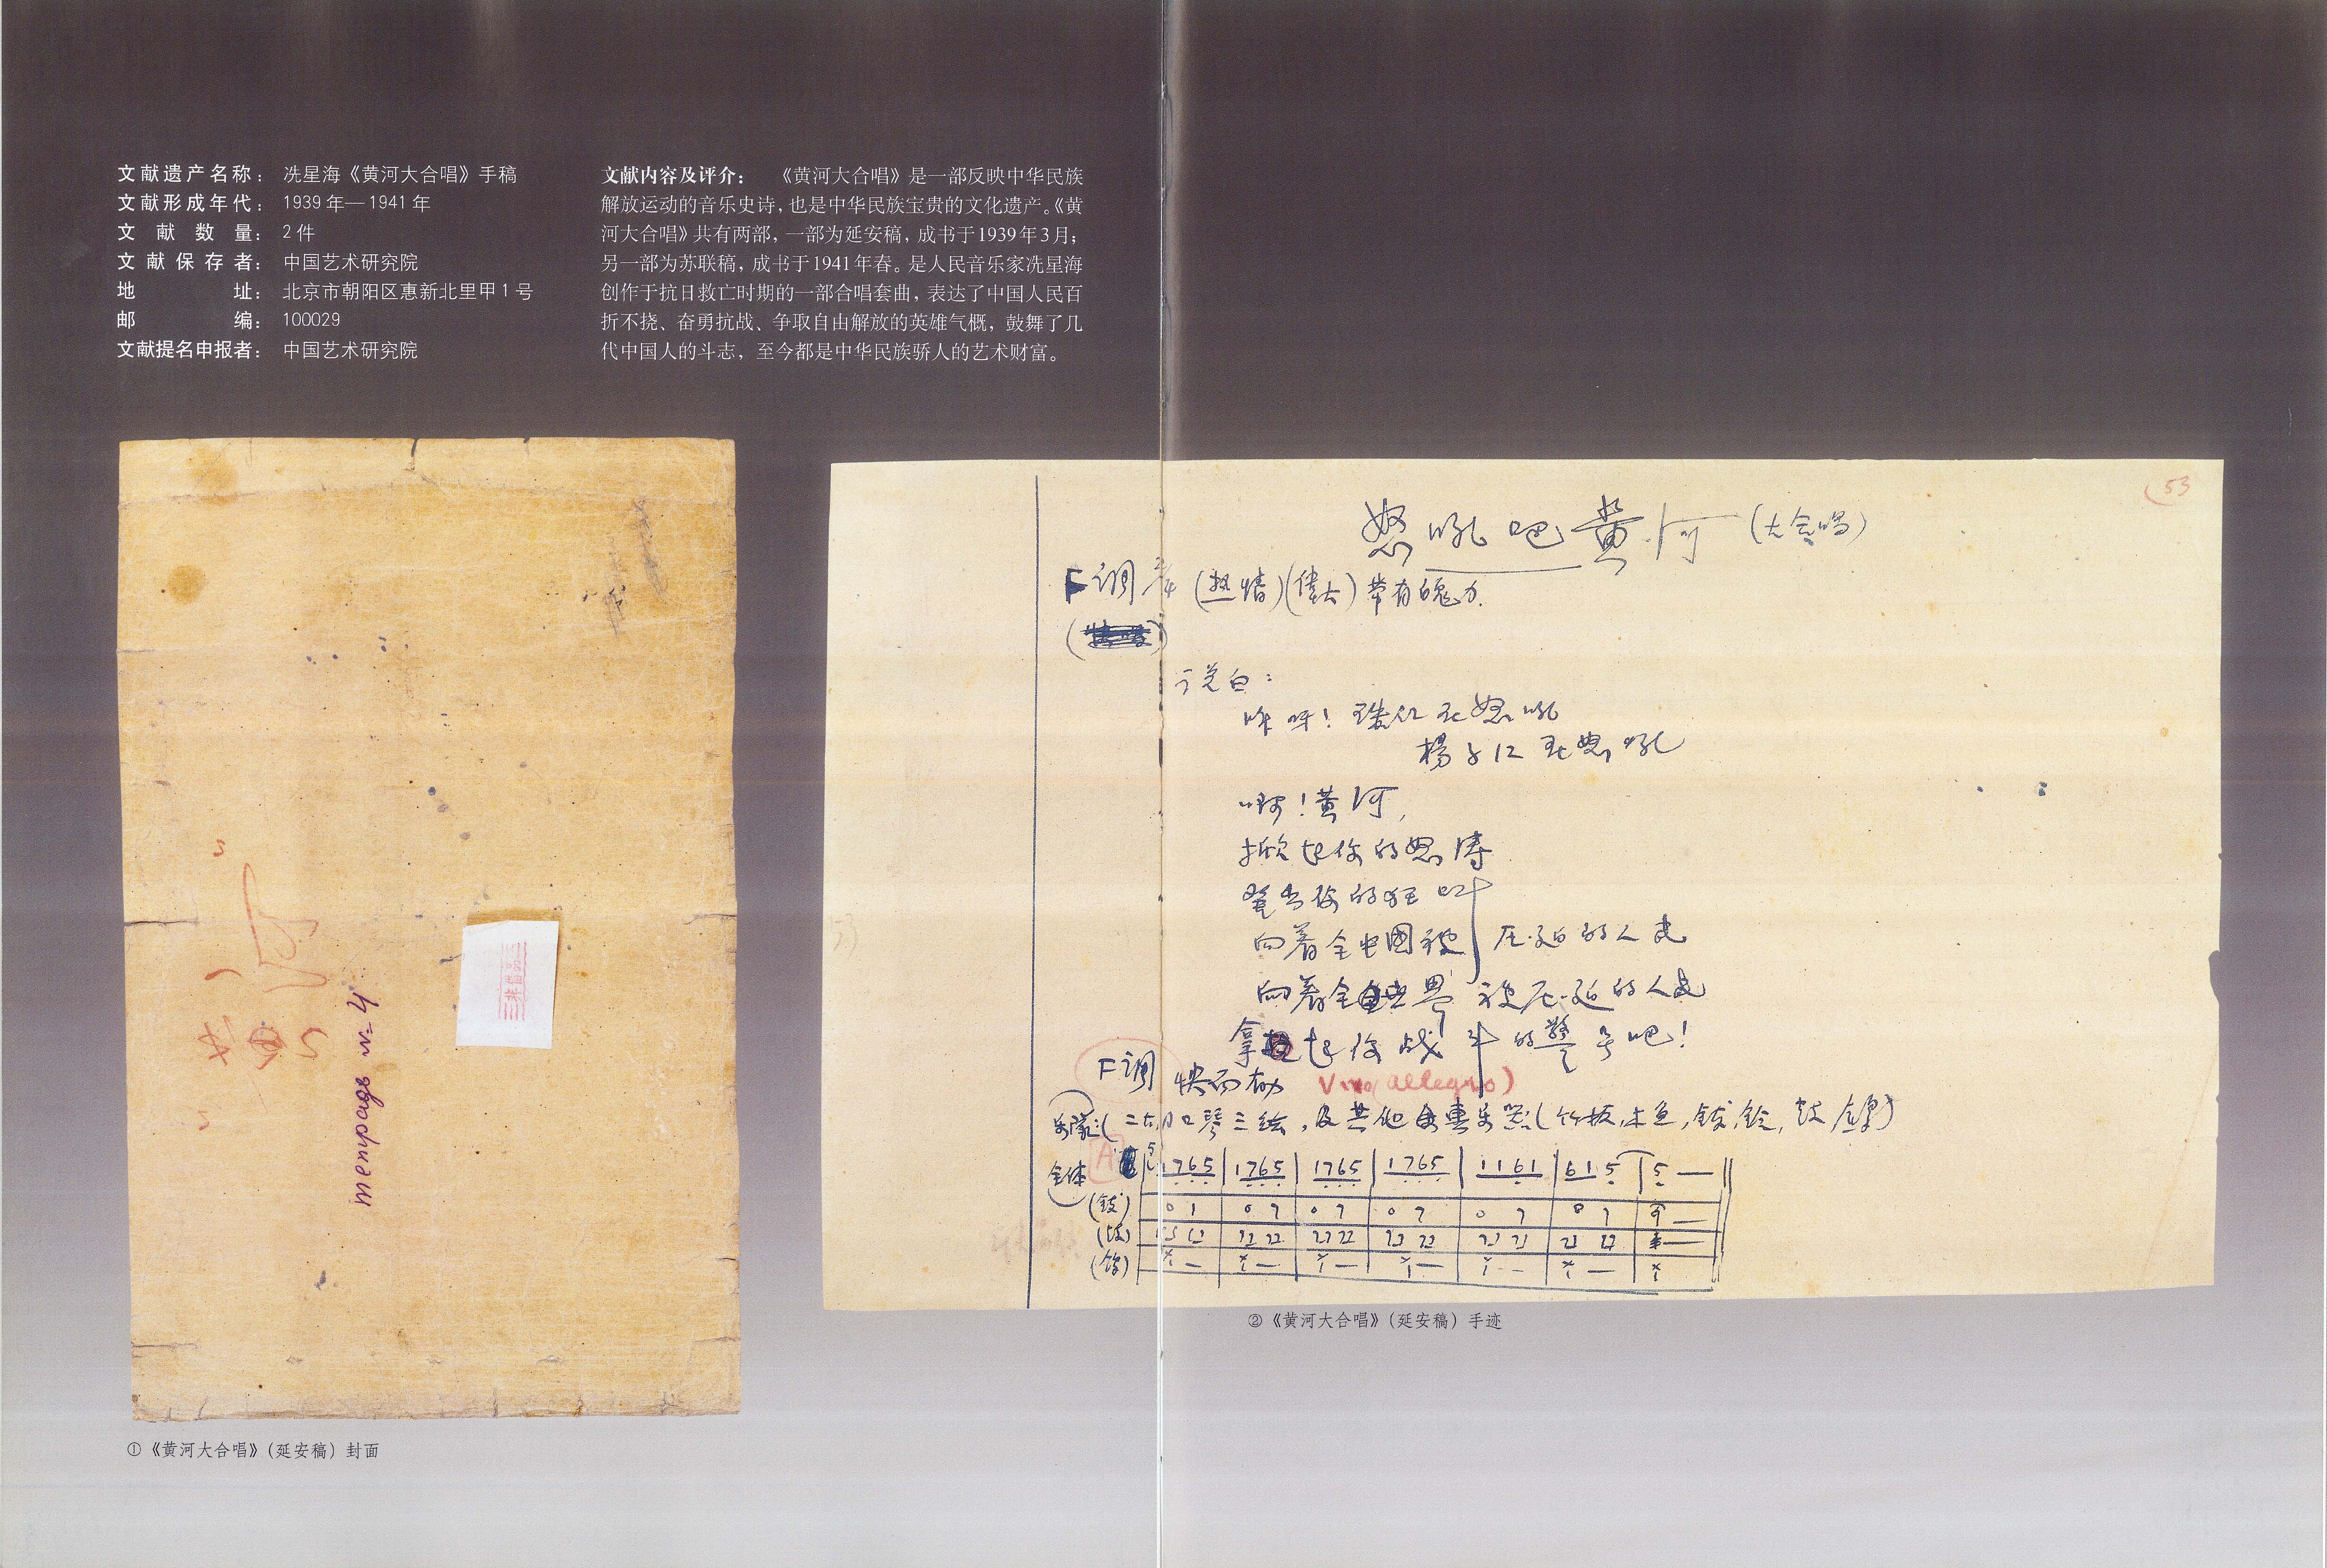 文献遗产名称： 冼星海《黄河大合唱》手稿
文献形成年代： 1939年—1941年
文献数量： 2件
文献保存者： 中国艺术研究院
地址： 北京市朝阳区惠新北里甲1号
邮编： 100029
文献提名申报者： 中国艺术研究院
文献内容及评介： 《黄河大合唱》是一部反映中华民族
解放运动的音乐史诗，也是中华民族宝贵的文化遗产。《黄
河大合唱》共有两部，一部为延安稿，成书于1939年3月；
另一部为苏联稿，成书于1941年春。是人民音乐家冼星海
创作于抗日救亡时期的一部合唱套曲，表达了中国人民百
折不挠、奋勇抗战、争取自由解放的英雄气概，鼓舞了几
代中国人的斗志，至今都是中华民族骄人的艺术财富。
黄河
①《黄河大合唱》（延安稿）封面
53
怒吼吧黄河（大合唱）
F调 (热情)(伟大)带有魄力.
说白：
在怒吼
楊子江在怒吼
啊！黄河，
掀起你的怒涛
发出你的狂叫
向着全中國被压迫的人民
向着全世界被压迫的人民
拿起你战斗的警号吧！
F调 快而有力 Vivo(allegro)
乐隊：(二胡,口琴三弦,及其他乐器(竹板,木鱼,钹,铃,鼓,鑼)
全体 1765 | 1765 | 1765 | 1765 | 1161 | 615 | 5 —
(钹)
(鼓)
(锣)
②《黄河大合唱》（延安稿）手迹